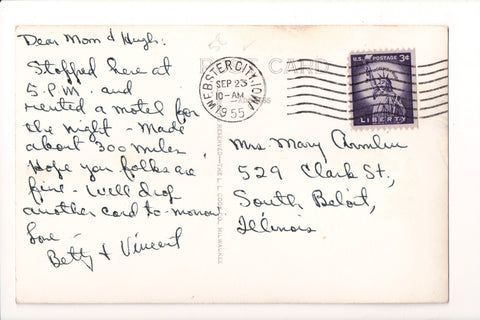 Dear Mom & Hugh:
Stopped here at
5 P.M. and
rented a motel for
the night - Made
about 300 miles.
Hope you folks are
fine - We'll drop
another card to-morrow
Love -
Betty & Vincent
5¢
POST CARD
ADDRESS
WEBSTER CITY, IOWA
SEP 23
10-AM
1955
U.S. POSTAGE 3¢
LIBERTY
Mrs. Mary
529 Clark St.,
South Beloit,
Illinois
RESERVED—THE L. L. COOK CO., MILWAUKEE